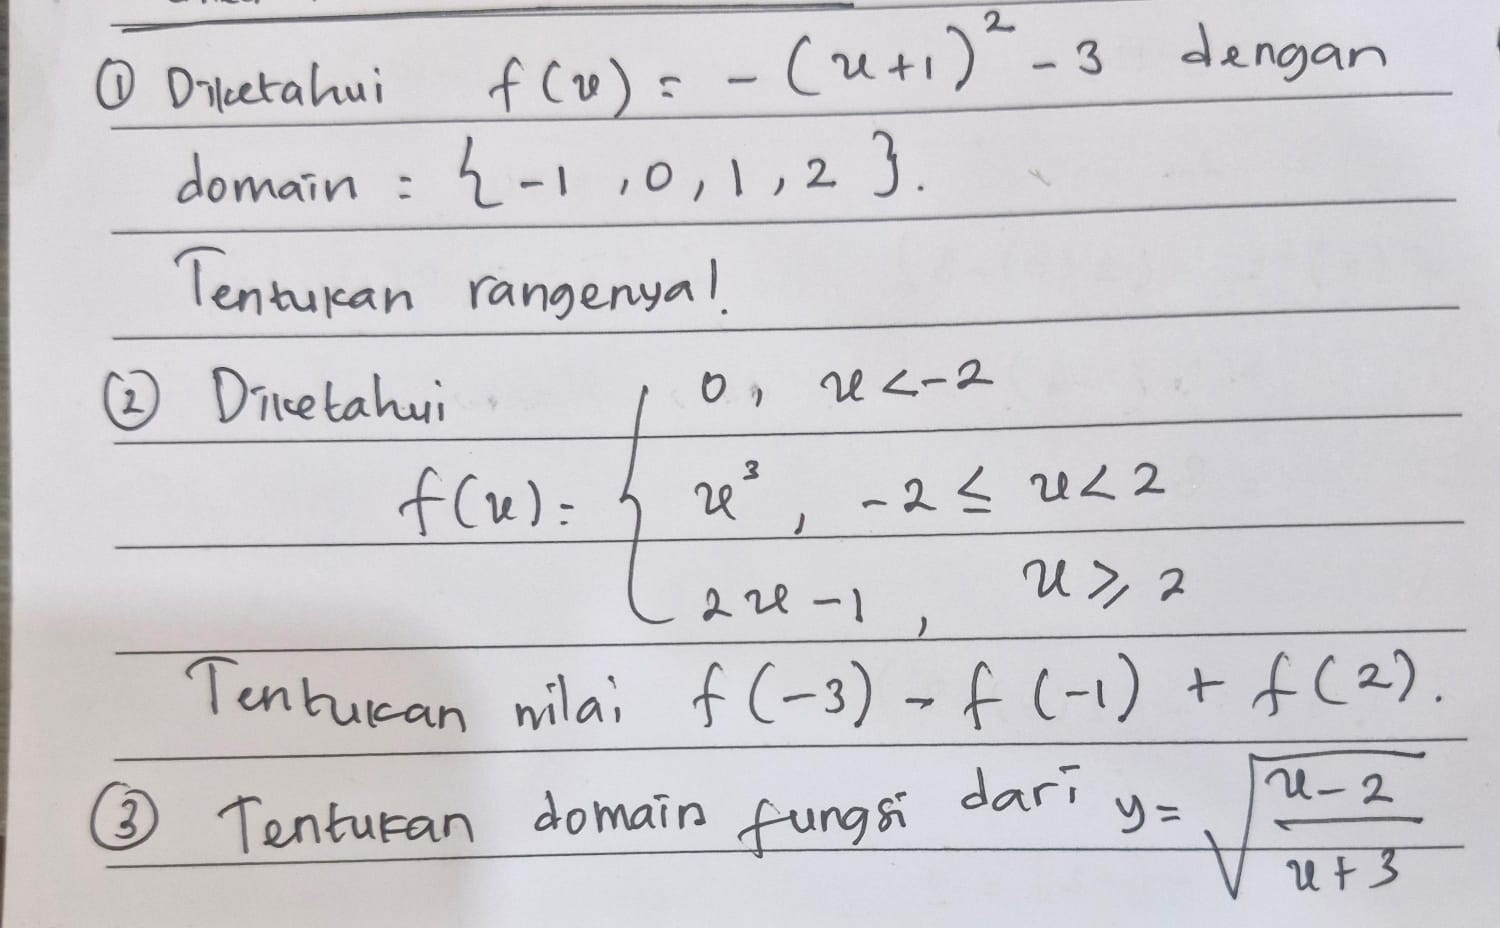 ① Diketahui f(x) = -(x+1)² - 3 dengan
domain : {-1, 0, 1, 2}.
Tentukan rangenya!
② Diketahui
f(x) = { 0, x < -2
x³, -2 ≤ x < 2
2x - 1, x ≥ 2
Tentukan nilai f(-3) - f(-1) + f(2).
③ Tentukan domain fungsi dari y = √((x-2)/(x+3))